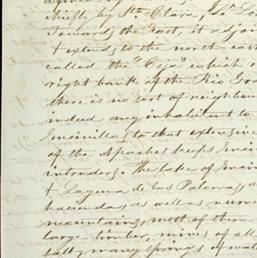 chiefly by Sta Clara, Sn Lo
Toward the East, it adjoin
& extends to the north east
called the "Ceja" which
right bank of the Rio Gra
there is no sort of neighbour
indeed any inhabitant to
Encinillas; to that extensive
of the Apaches keeps
intruders. The lake of Encin
& Laguna de las Palomas,
hacienda, as well as num
mountains, most of them
large timber, mines of
salt, many springs of wate